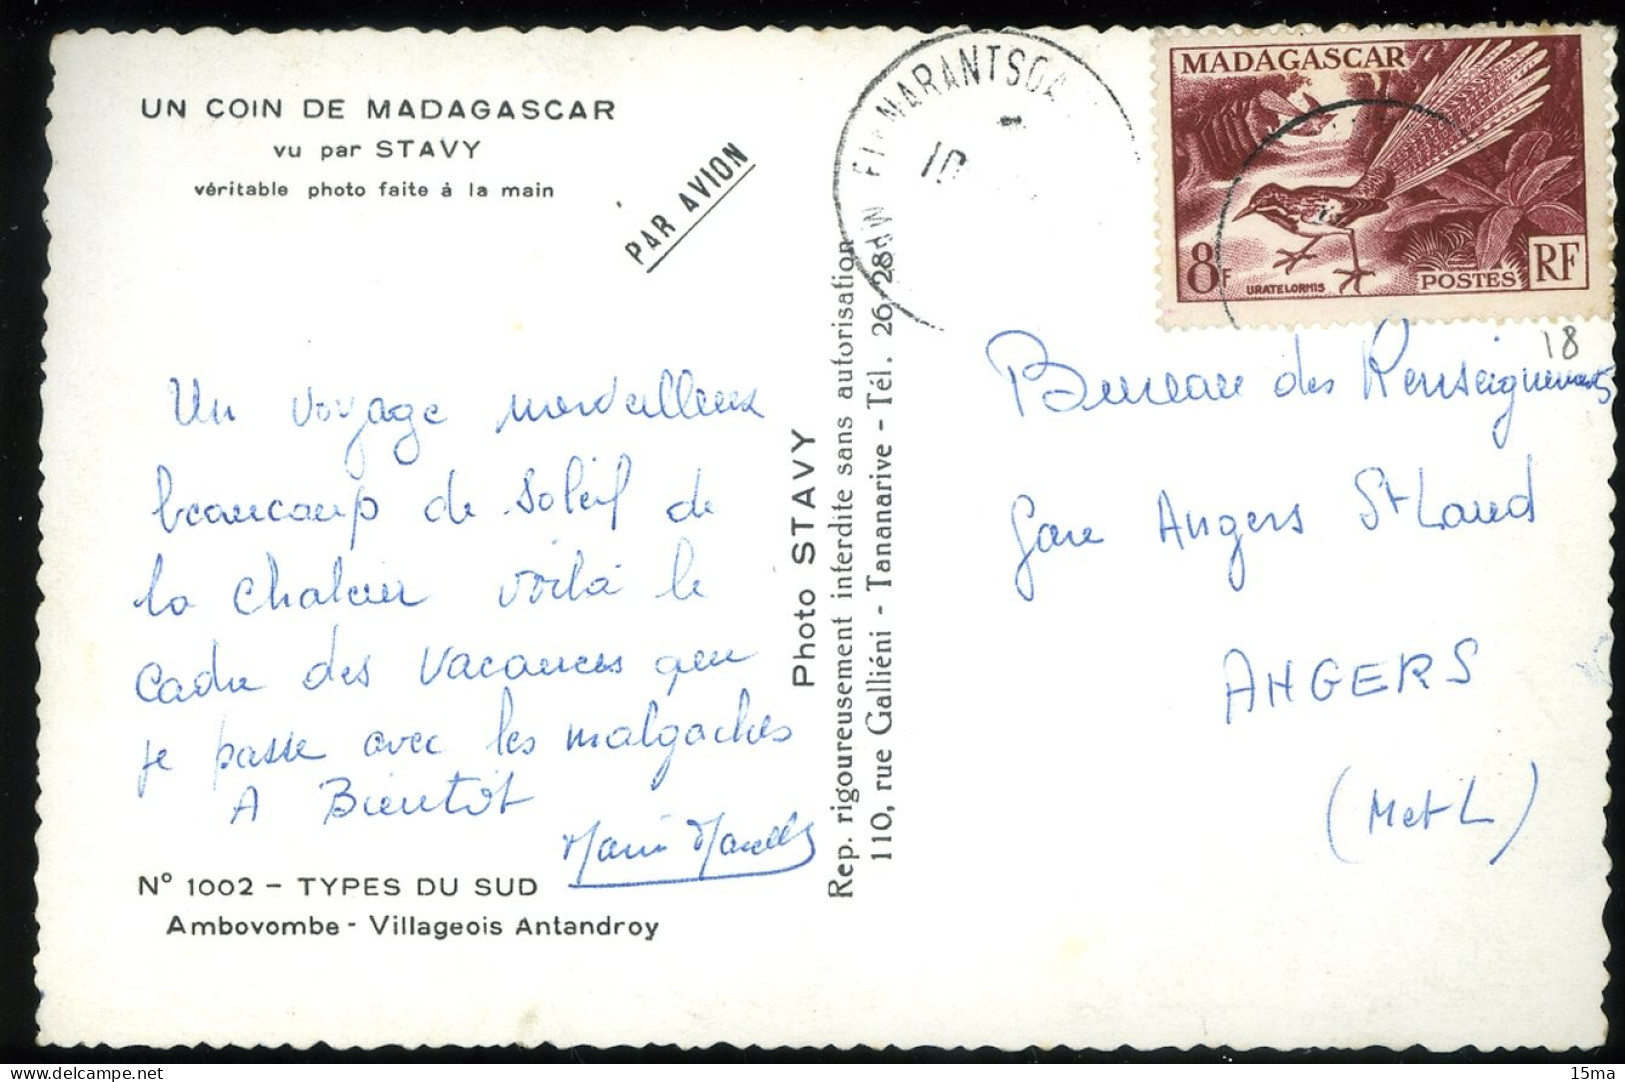 UN COIN DE MADAGASCAR
vu par STAVY
véritable photo faite à la main
PAR AVION
Un voyage merveilleux
beaucoup de soleil de
la chaleur voilà le
cadre des vacances que
je passe avec les malgaches
A Bientôt
Nº 1002 - TYPES DU SUD
Ambovombe - Villageois Antandroy
Photo STAVY
Rep. rigoureusement interdite sans autorisation
110, rue Galliéni - Tananarive - Tél. 26-28
NARANTSOA
10
MADAGASCAR
8F
URATELORNIS
POSTES
RF
18
Bureau des Renseignements
Gare Angers St Laud
ANGERS
(M et L)
15ma